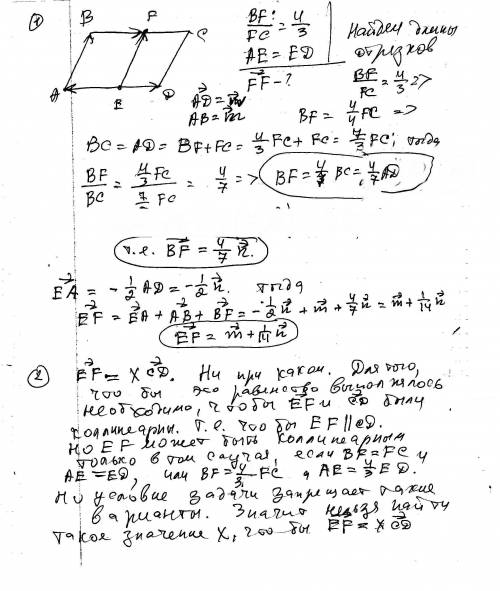 1
B F C
A E D
BF : FC = 4/3
AE = ED
EF - ?
Найдем длины
отрезков
BF/FC = 4/3 =>
AD = n
AB = m
BF = 4/3 FC =>
BC = AD = BF + FC = 4/3 FC + FC = 7/3 FC; тогда
BF/BC = 4/3 FC / 7/3 FC = 4/7 => BF = 4/7 BC = 4/7 AD
т.е. BF = 4/7 n.
EA = - 1/2 AD = - 1/2 n. тогда
EF = EA + AB + BF = - 1/2 n + m + 4/7 n = m + 1/14 n
EF = m + 1/14 n
2 EF = x CD. Ни при каком. Для того,
что бы это равенство выполнялось
необходимо, чтобы EF и CD были
коллинеарны. Т.е. что бы EF || CD.
Но EF может быть коллинеарным
только в том случае, если BF = FC и
AE = ED, или BF = 4/3 FC, а AE = 4/3 ED.
Но условие задачи запрещает такие
варианты. Значит нельзя найти
такое значение x, что бы EF = x CD